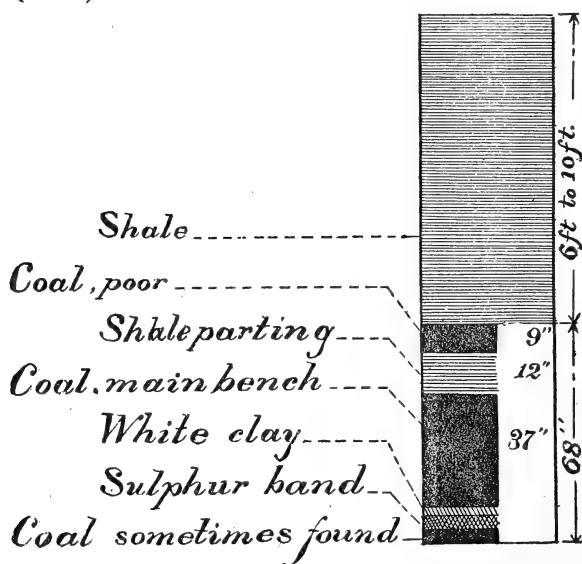 Shale
Coal, poor
Shale parting
Coal, main bench
White clay
Sulphur band
Coal sometimes found
6ft to 10ft.
9"
12"
37"
68"